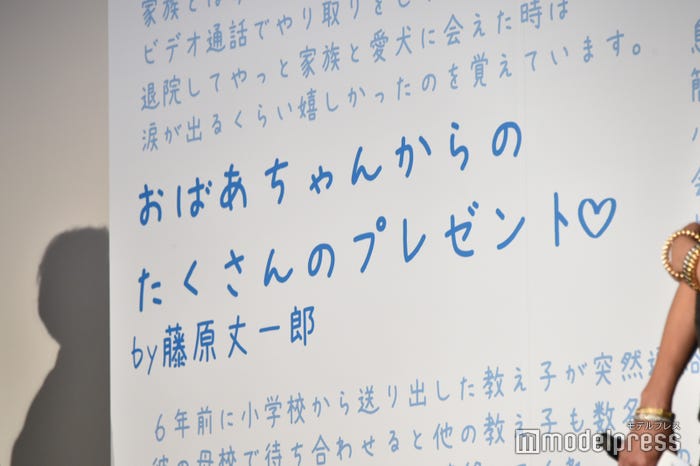 家族とは
ビデオ通話でやり取りをし
退院してやっと家族と愛犬に会えた時は
涙が出るくらい嬉しかったのを覚えています。
おばあちゃんからの
たくさんのプレゼント♡
by藤原丈一郎
6年前に小学校から送り出した教え子が突然
彼の母校で待ち合わせると他の教え子も数名
モデルプレス
modelpress